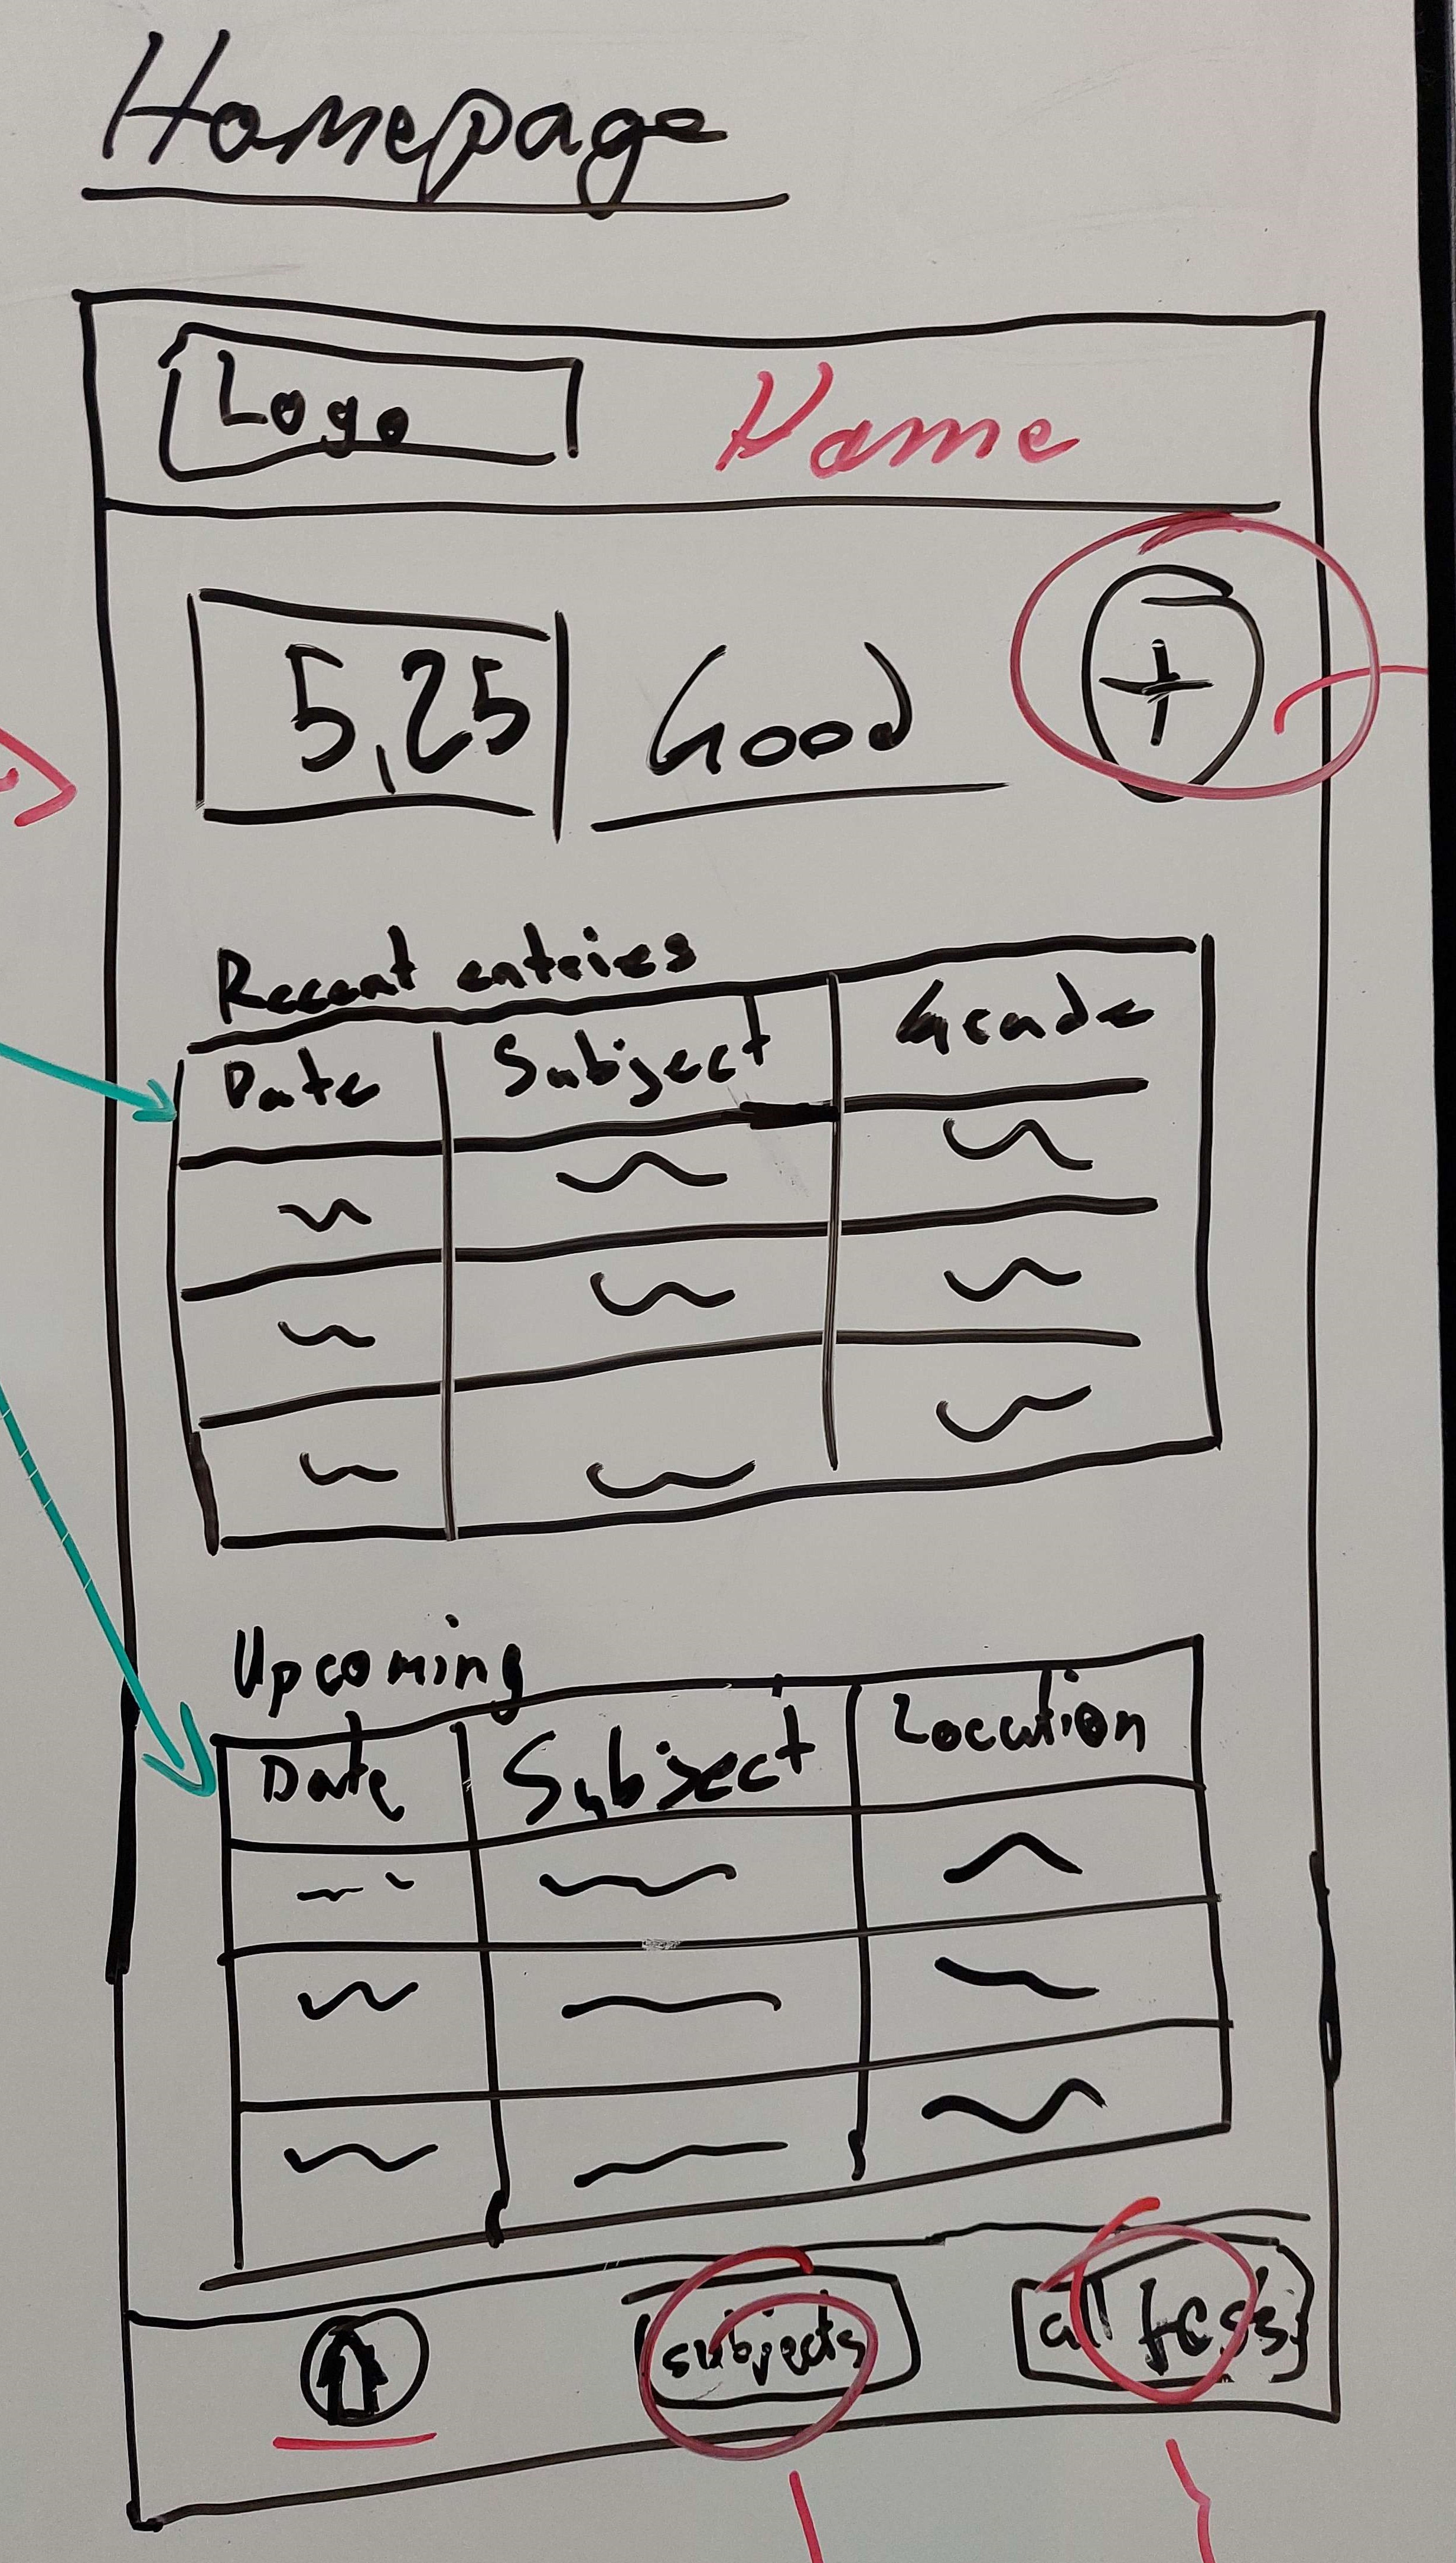 Homepage
Logo Name
5,25 Good +
Recent entries
Date Subject Grade
Upcoming
Date Subject Location
subjects all tests